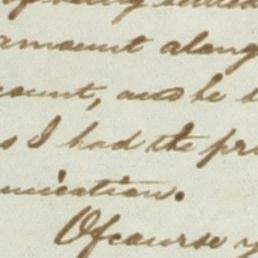 amount along
count, and he
s I had the pr
unication.
Ofcourse y